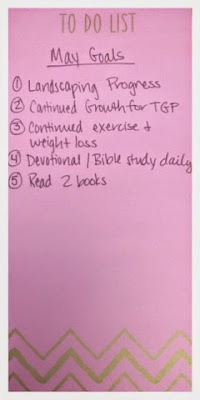 TO DO LIST
May Goals
① Landscaping Progress
② Continued Growth for TGP
③ Continued exercise +
weight loss
④ Devotional / Bible study daily
⑤ Read 2 books